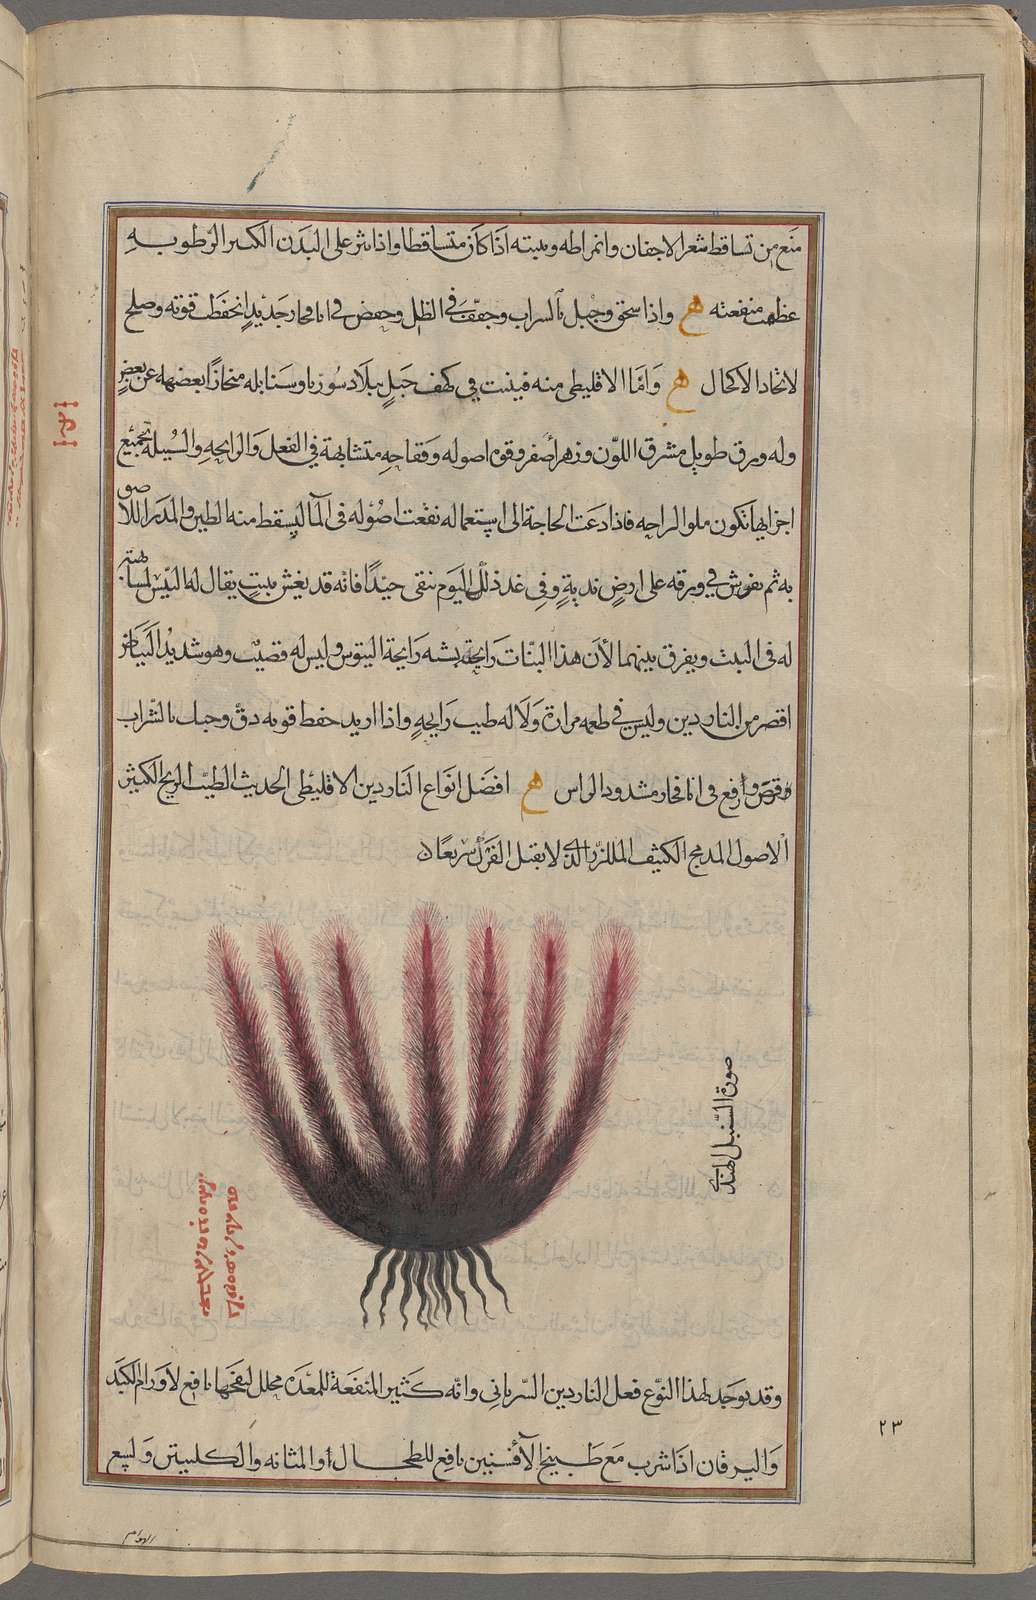 منع من تساقط شعر الاجفان وانمراطه وينبته اذا كان متساقطا واذا نثر على البدن الكثير الرطوبه
عظمت منفعته ه واذا سحق وجبل بالسراب وجفف في الظل وحفض في انا فخار جديد انحفظت قوته وصلح
لاتخاد الاكحال ه واما الاقليطى منه فينبت في كهف جبل ببلاد سوريا وسنابله منحازا بعضها عن بعض
وله ورق طويل مشرق اللون وزهر اصفر وقوه اصوله وفقاحه متشابهة في الفعل والرايحه والسبيله بجميع
اجزايها تكون الراحه فاذا دعت الحاجة الى استعماله نقعت اصوله في الما ليسقط منه الطين والمدر اللاصق
به ثم يفرش في ورقه على ارض ندية وفي غد ذلك اليوم ننقى جيدا فانه قد يغش بنبت يقال له
له في النبت ويفرق بينهما لأن هذا النبات رايحة يشبه رايحة التيوس وليس له قضيب وهو شديد البياض
اقصر من الناردين وليس في طعمه مرارة ولا له طيب رايحة واذا اريد حفظ قوته دق وجبل بالشراب
وقرص وارفع في انا فخار مشدود الراس ه افضل انواع الناردين الاقليطى الحديث الطيب الريح الكثير
الاصول المدمج الكثيف الملزز الذي لا يقبل الفرك سريعا
صورة السنبل الهندي
وقد يوجد لهذا النوع فعل الناردين السرياني وانه كثير المنفعة للمعده محلل لنفخها نافع لاورام الكبد
واليرقان اذا شرب مع طبيخ الأفسنتين نافع للطحال او المثانه والكليتين ولسع
٢٣
الهوام